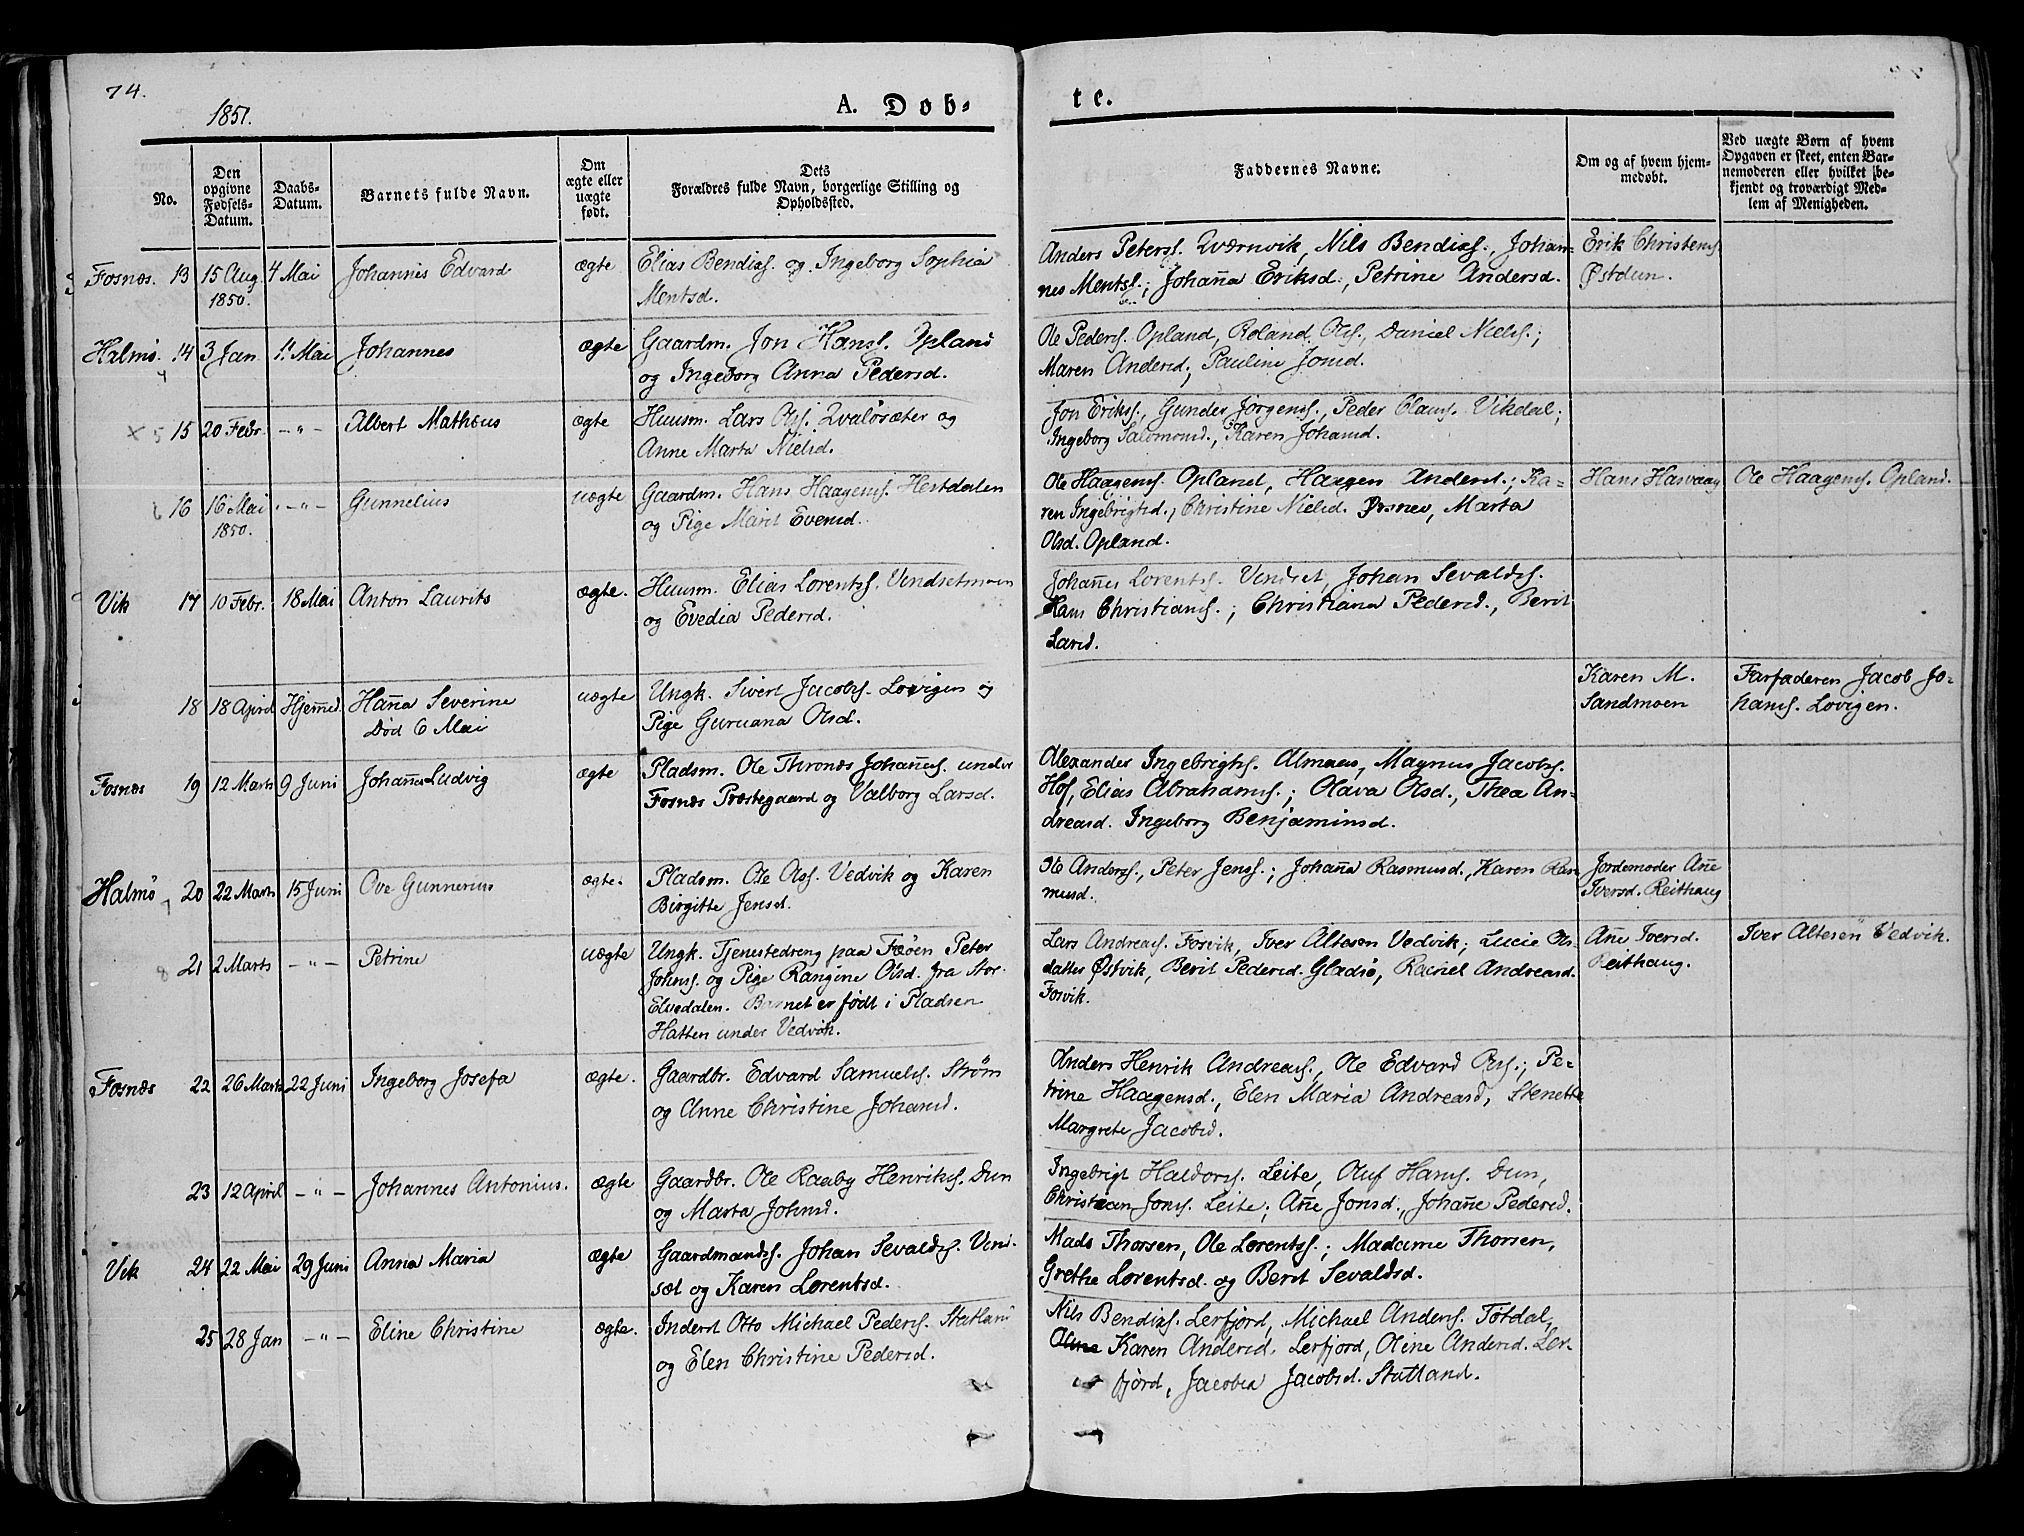 74.
1851.
A. Døb-
te.
No.
Den
opgivne
Fødsels-
Datum.
Daabs-
Datum.
Barnets fulde Navn.
Om
ægte eller
uægte
født.
Dets
Forældres fulde Navn, borgerlige Stilling og
Opholdssted.
Faddernes Navne.
Om og af hvem hjem-
medøbt.
Ved uægte Børn af hvem
Opgaven er skeet, enten Bar-
nemoderen eller hvilket be-
kjendt og troværdigt Med-
lem af Menigheden.
Fosnæs. 13 15 Aug 4 Mai Johannes Edvard ægte Elias Bendixs. og Ingeborg Sophia
1850. Mentsd.
Anders Peters. Qværnvik, Nils Bendixs., Johan-
nes Ments.; Johaña Eriksd., Petrine Andersd.
Erik Christens.
Østdun.
Halmø. 14 3 Jan 11 Mai Johannes ægte Gaardm. Jon Hans. Opland
og Ingeborg Anna Pedersd.
Ole Peders. Opland, Roland Ols., Daniel Niels.;
Maren Andersd., Pauline Jonsd.
15 20 Febr. -"- Albert Matheus ægte Huusm. Lars Ols. Qvaløsæter og
Anne Marta Nielsd.
Jon Eriks., Gunder Jørgens., Peder Claus. Vikdal;
Ingeborg Salomonsd., Karen Johansd.
16 16 Mai -"- Gunnelius uægte Gaardm. Hans Haagens. Hestdalen
1850. og Pige Marit Evensd.
Ole Haagens. Opland, Haagen Anders.; Ka-
ren Ingebrigtsd., Christine Nielsd. Fosnes, Marta
Olsd. Opland.
Hans Hasvaag
Ole Haagens. Opland.
Vik 17 10 Febr. 18 Mai Anton Laurits ægte. Huusm. Elias Lorents. Vendsetmoen
og Evedia Pedersd.
Johañes Lorents. Vendset, Johan Sevalds.
Hans Christians.; Christiana Pedersd., Berit
Larsd.
18 18 April Hjemmed. Haña Severine uægte Ungk. Sivert Jacobs. Lovigen og
Død 6 Mai Pige Guruana Olsd.
Karen M.
Sandmoen
Farfaderen Jacob Jo-
hans. Lovigen.
Fosnæs 19 12 Marts 9 Juni Johañes Ludvig ægte Pladsm. Ole Thronds Johañes. under
Fosnæs Præstegaard og Valborg Larsd.
Alexander Ingebrigts. Almaas, Magnus Jacobs.
Hof, Elias Abrahams.; Olava Olsd., Thea An-
dreasd. Ingeborg Benjaminsd.
Halmø 20 22 Marts 15 Juni Ove Gunnerius ægte. Pladsm. Ole Ols. Vedvik og Karen
Birgitte Jensd.
Ole Anders., Peter Jens.; Johaña Rasmusd., Karen Ras
musd.
Jordemoder Añe
Iversd. Reithaug
21 2 Marts -"- Petrine uægte Ungk. Tjenestedreng paa Feøen Peter
Johns. og Pige Rangine Olsd. fra Stor-
Elvedalen. Barnet er født i Pladsen
Hatten under Vedvik.
Lars Andreas. Fosvik, Iver Altesen Vedvik; Lucie Ols-
datter Østvik, Berit Pedersd. Gladsø, Rachel Andreasd.
Fosvik.
Añe Iversd.
Reithaug.
Iver Altesen Vedvik.
Fosnæs 22 26 Marts 22 Juni Ingeborg Josefa ægte. Gaardbr. Edvard Samuels. Strøm
og Anne Christine Johansd.
Anders Henrik Andreas., Ole Edvard Ols.; Pe-
trine Haagensd., Elen Maria Andreasd, Stenette
Margrete Jacobsd.
23 12 April -"- Johannes Antonius. ægte Gaardbr. Ole Raaby Henriks. Dun
og Marta Johnsd.
Ingebrigt Haldors. Leite, Oluf Hans. Dun,
Christian Jons. Leite; Añe Jonsd., Johañe Pedersd.
Vik 24 22 Mai 29 Juni Anna Maria ægte Gaardmands. Johan Sevalds. Vend-
set og Karen Lorentsd.
Mads Thorsen, Ole Lorents.; Madame Thorsen,
Grethe Lorentsd. og Berit Sevaldsd.
25 28 Jan -"- Eline Christine ægte. Inderst Otto Michael Peders. Statland
og Elen Christine Pedersd.
Nils Bendixs. Lerfjord, Michael Anders. Tøtdal,
Karen Andersd. Lerfjord, Oline Andersd. Ler-
fjord, Jacobia Jacobsd. Statland.